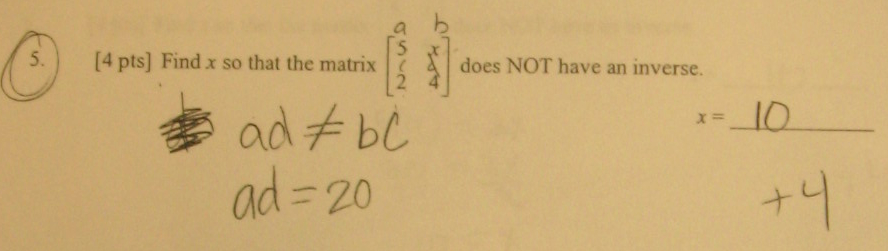 a b
5. [4 pts] Find x so that the matrix [5 x c d 2 4] does NOT have an inverse.
ad ≠ bc
x = 10
ad = 20
+4